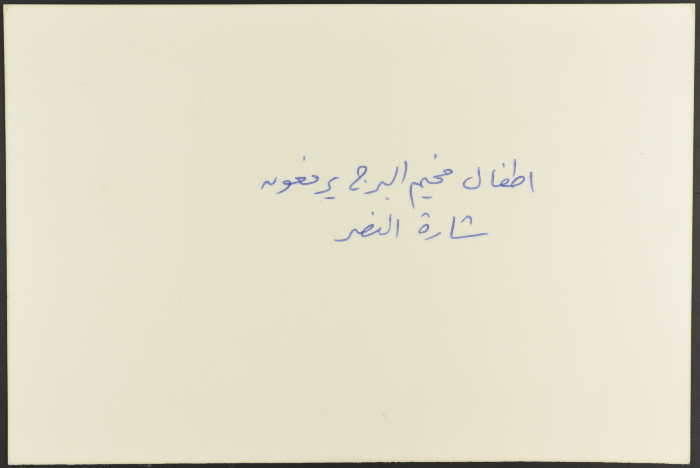 اطفال مخيم البرج يرفعون
شارة النصر